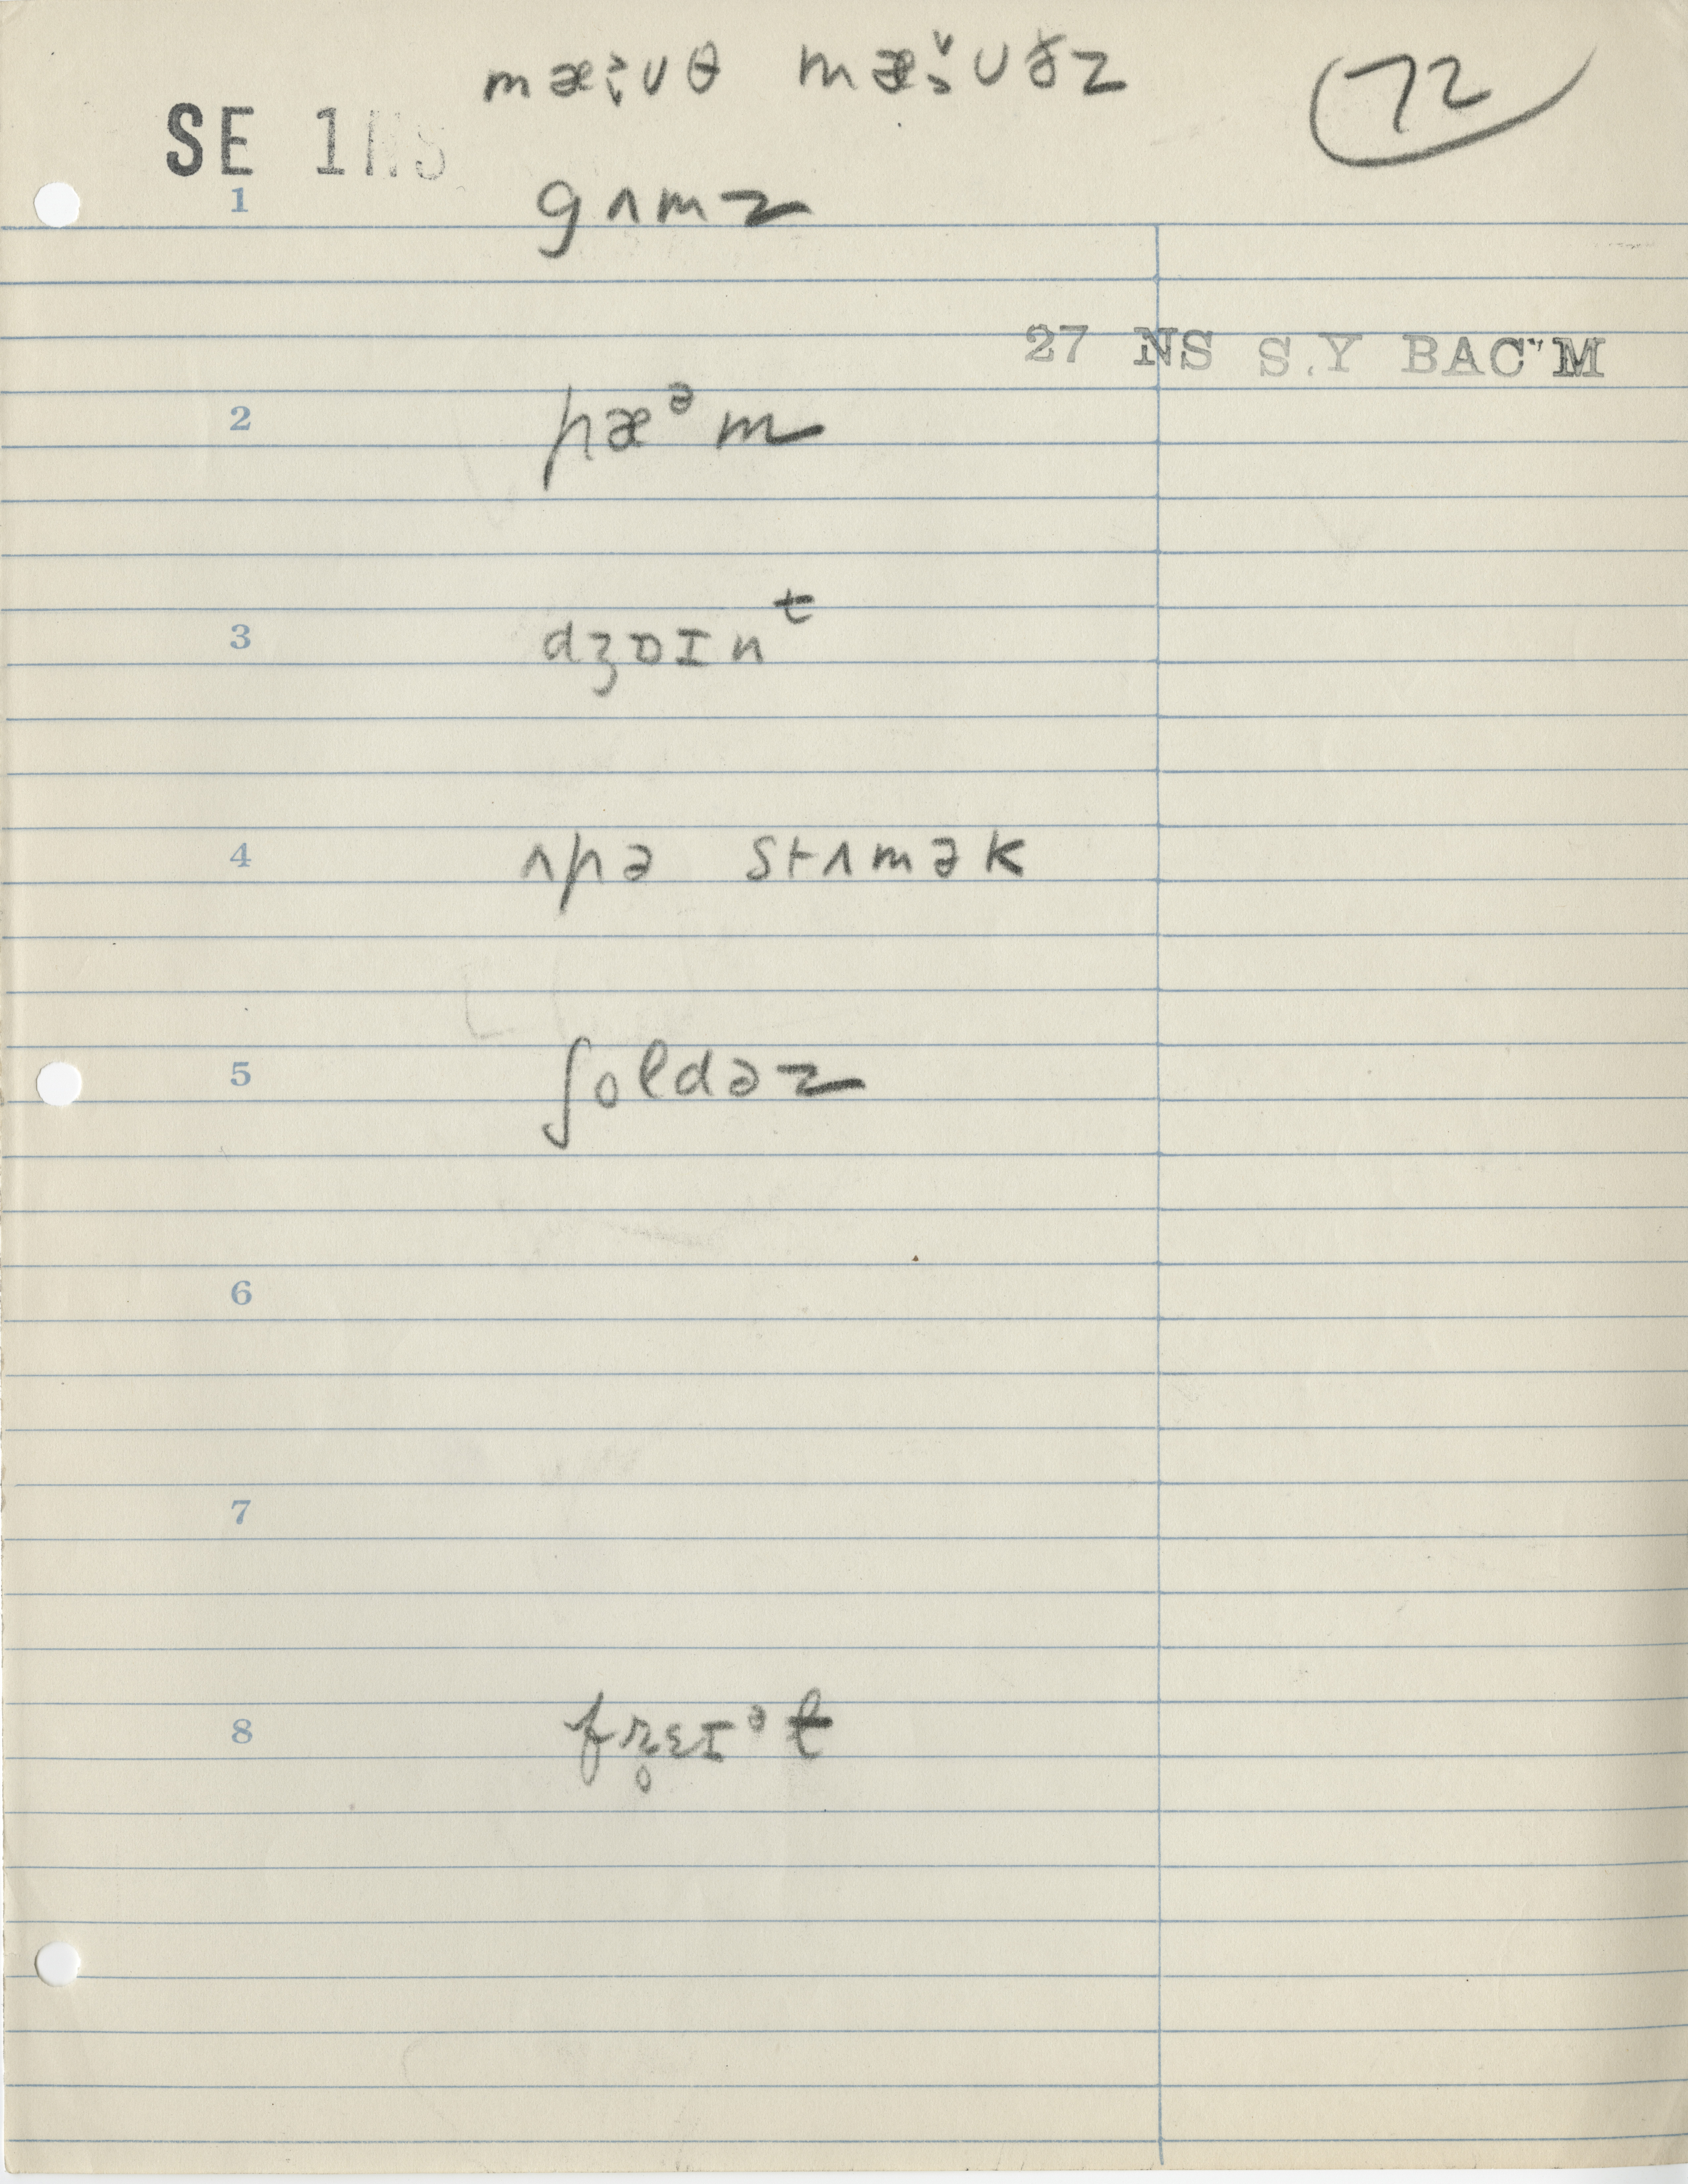 mæ̬ʊθ mæ̬ʊðz 72
SE 1NS
1 gʌmz
27 NS S.Y BAC"M
2 pæᵊm
3 dʒɒɪnᵗ
4 ʌpə stʌmək
5 ʃoldəz
6
7
8 frɛɪᵊt